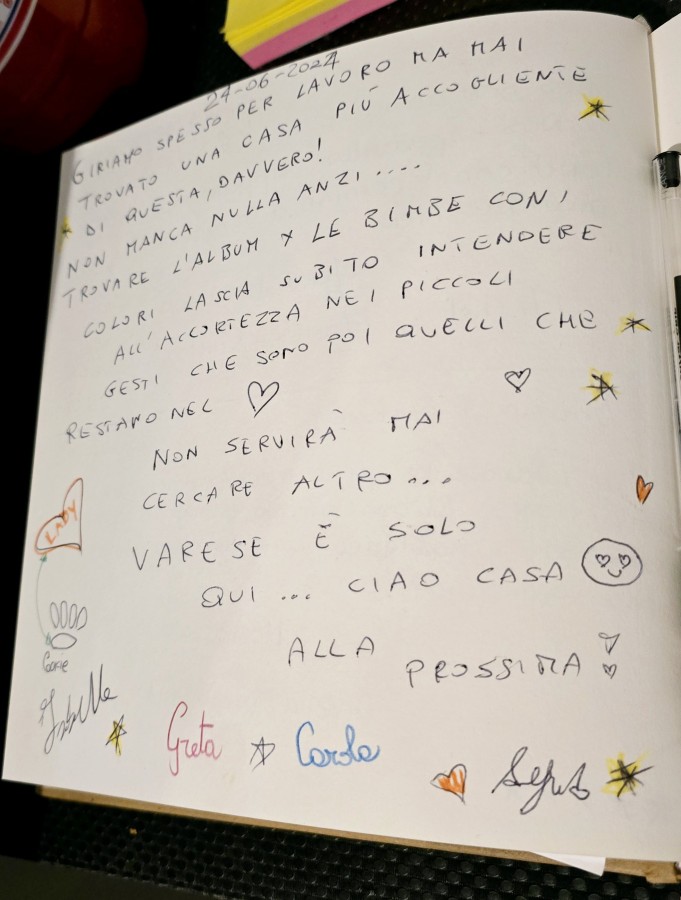 24-06-2024
GIRIAMO SPESSO PER LAVORO MA MAI
TROVATO UNA CASA PIÚ ACCOGLIENTE
DI QUESTA, DAVVERO!
NON MANCA NULLA ANZI....
TROVARE L'ALBUM X LE BIMBE CON I
COLORI LASCIA SUBITO INTENDERE
ALL'ACCORTEZZA NEI PICCOLI
GESTI CHE SONO POI QUELLI CHE
RESTANO NEL ♡
NON SERVIRÀ MAI
CERCARE ALTRO...
LADY
VARESE È SOLO
QUI ... CIAO CASA
ALLA
PROSSIMA!
Greta Carola